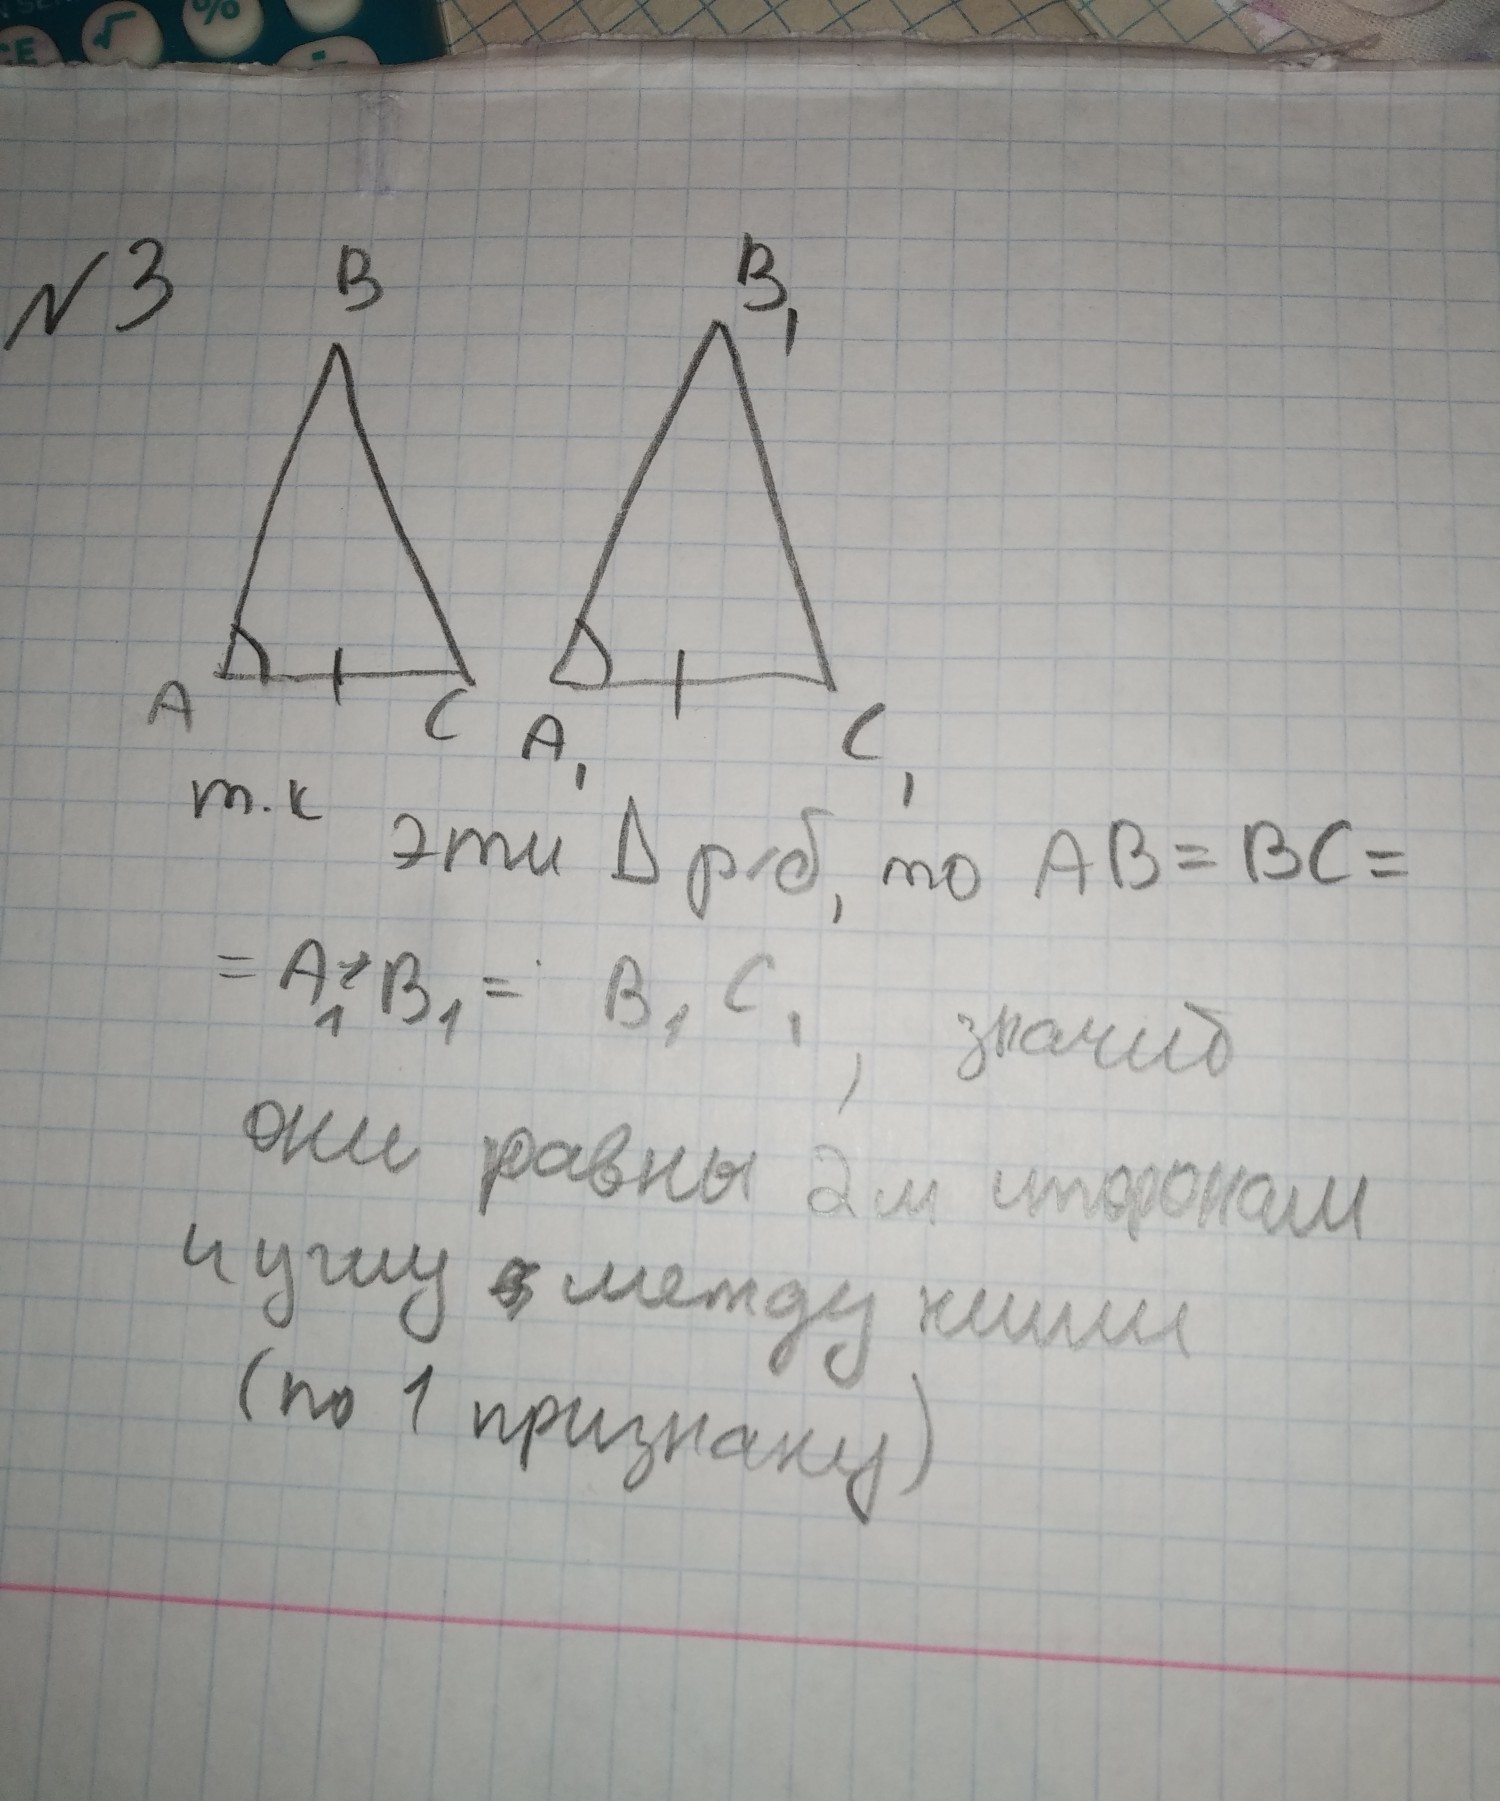 CE √ %
N3
B B₁
A C A₁ C₁
т.к эти Δ р/б, то AB = BC =
= A₁B₁ = B₁C₁, значит
они равны 2м сторонам
и углу между ними
(по 1 признаку)